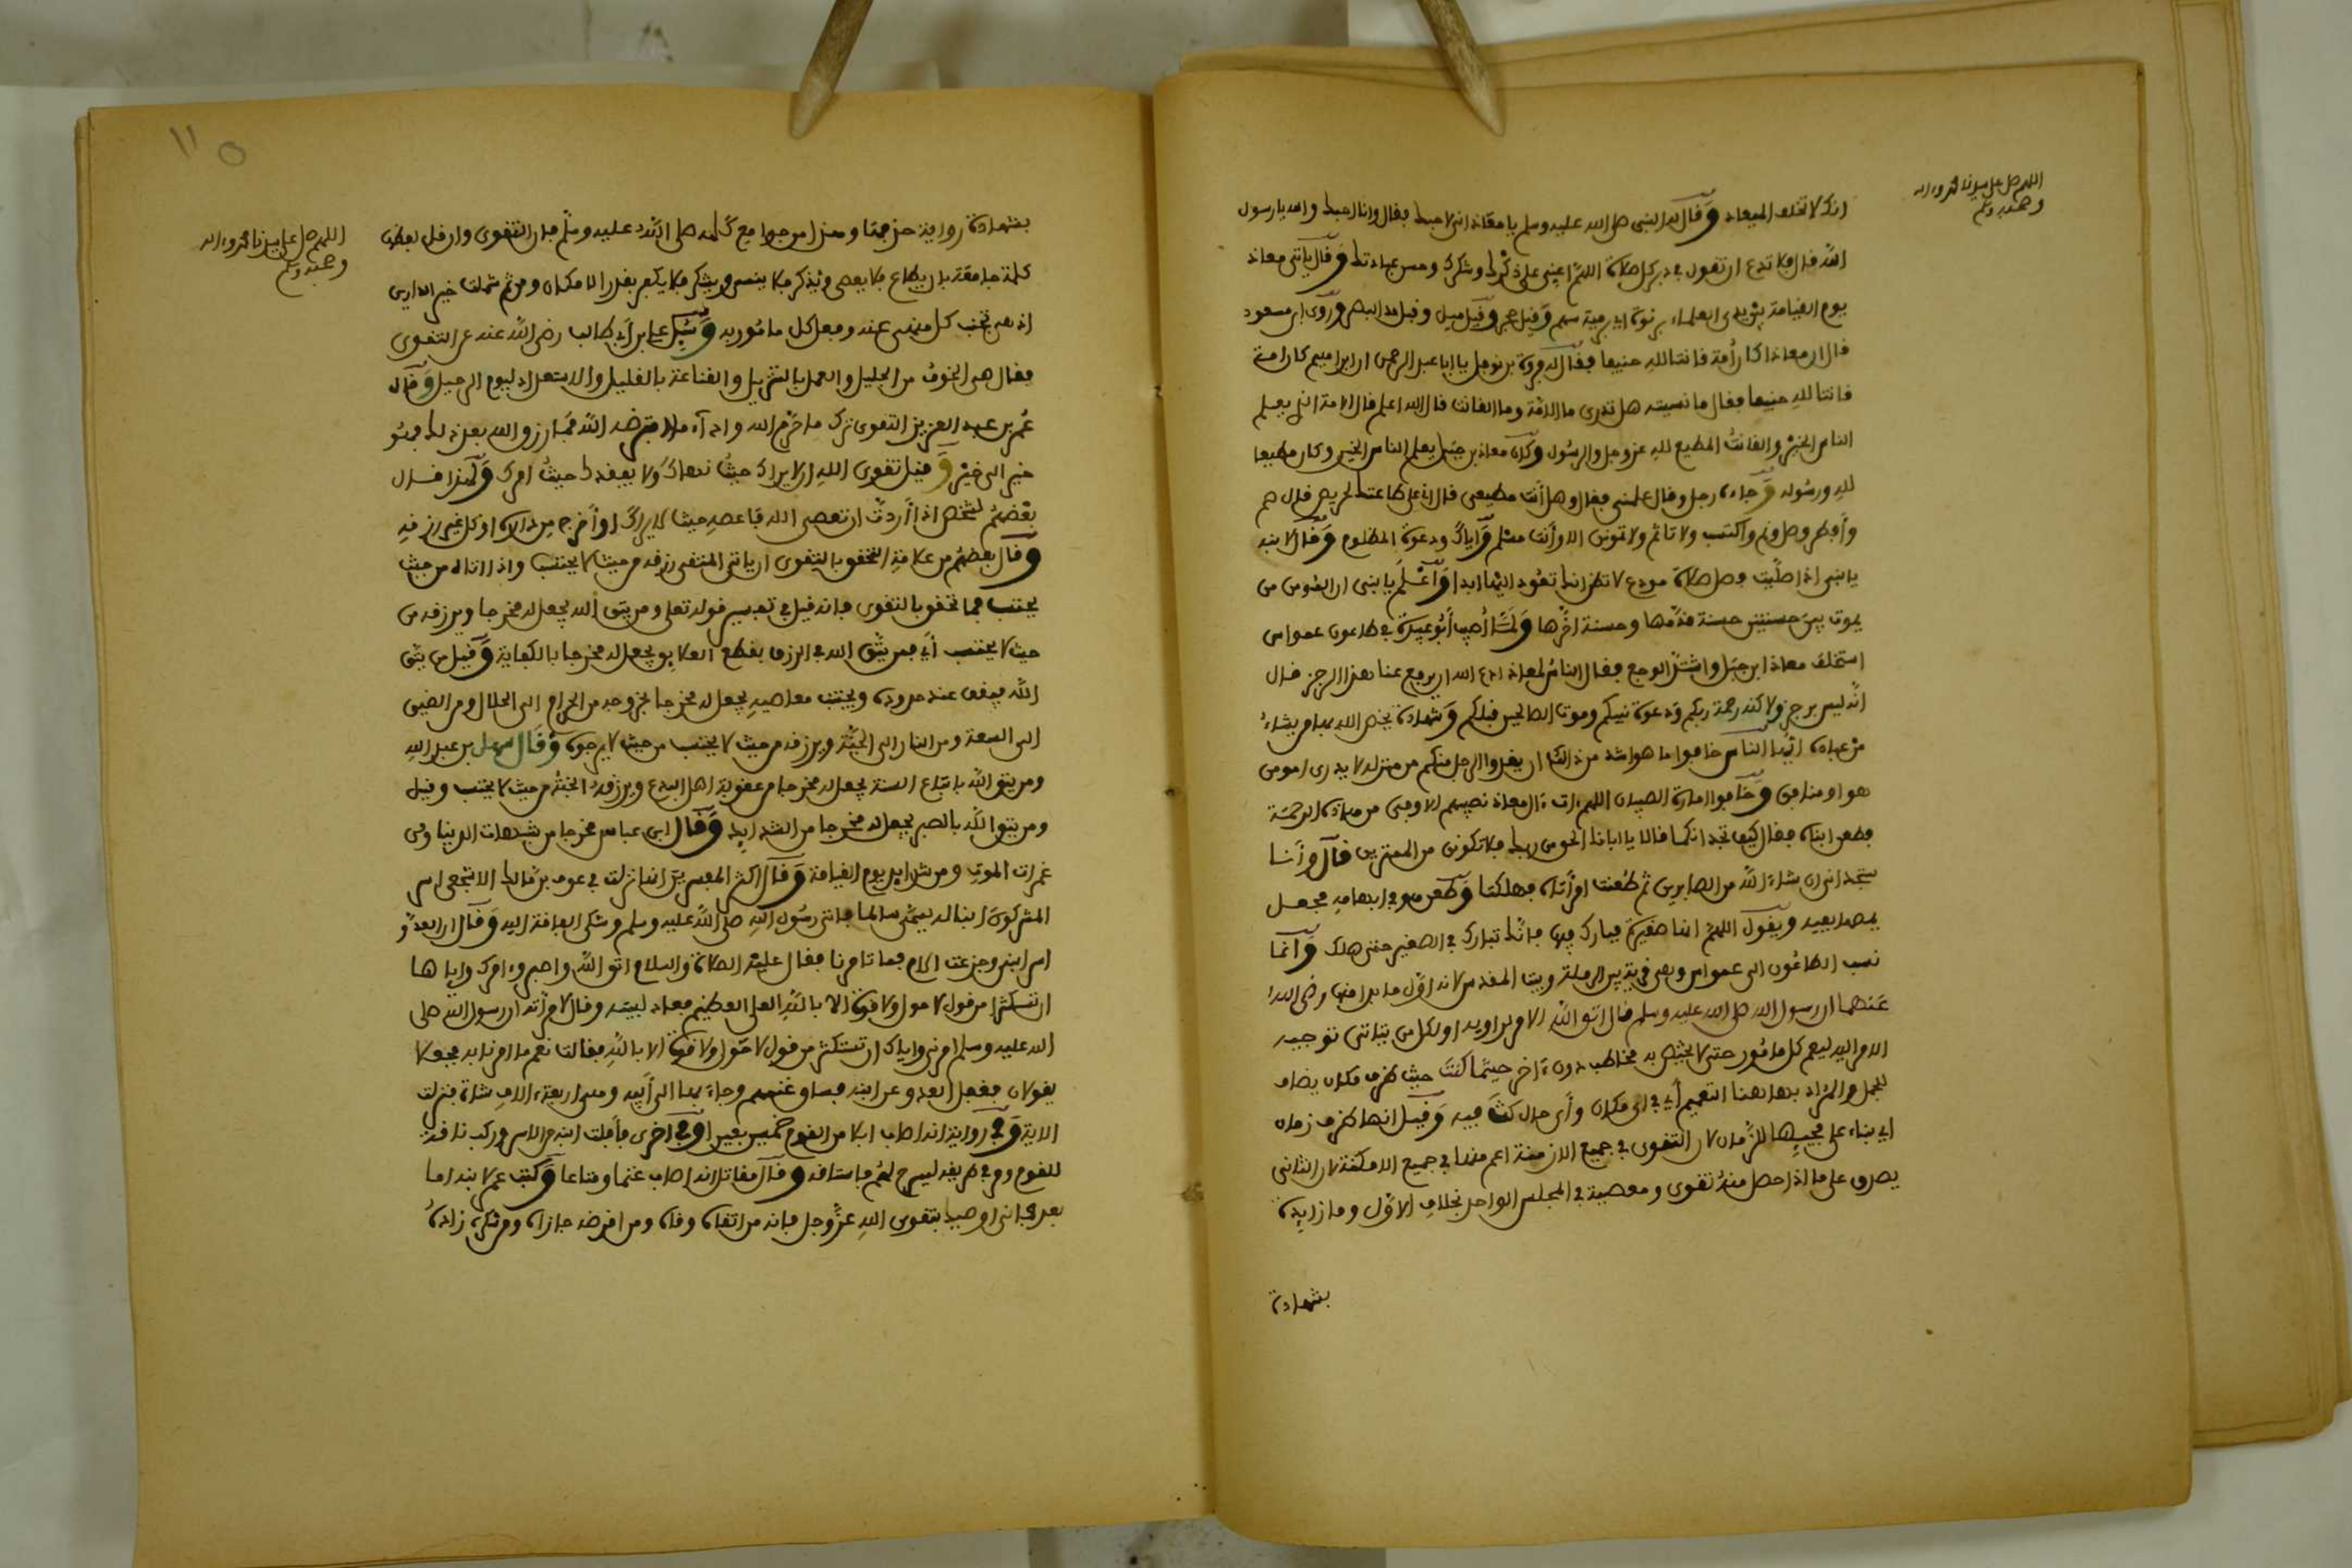 اللهم صل على سيدنا محمد وءاله
وصحبه وسلم
انك لا تخلف الميعاد وقال له النبي صلى الله عليه وسلم يا معاذ اني لاحبك فقال وانا احبك والله يا رسول
الله قال فلا تدع ان تقول في دبر كل صلاة اللهم اعني على ذكرك وشكرك وحسن عبادتك وقال ياتي معاذ
يوم القيامة بين يدي العلماء برتوة اي رمية سهم وقيل حجر وقيل ميل وقيل مد البصر وروى ابن مسعود
قال ان معاذا كان أمة قانتا لله حنيفا فقال له فروة بن نوفل يا ابا عبد الرحمن ان ابراهيم كان امة
قانتا لله حنيفا فقال ما نسيته هل تدرى ما الامة وما القانت قال الله اعلم قال الامة الذي يعلم
الناس الخير والقانت المطيع لله عز وجل والرسول وكان معاذ بن جبل يعلم الناس الخير وكان مطيعا
لله ورسوله وجاءه رجل وقال علمني فقال وهل أنت مطيعي قال اني على طاعتك لحريص قال صم
وأفطر وصل ونم واكتسب ولا تاثم ولا تموتن الا وأنت مسلم وإياك ودعوة المظلوم وقال لابنه
يا بني اذا صليت فصل صلاة مودع لا تظن انك تعود اليها ابدا واعلم يا بني ان المومن
يموت بين حسنتين حسنة قدمها وحسنة اخرها ولما أصيب أبو عبيدة في طاعون عمواس
استخلف معاذ ابن جبل واشتد الوجع فقال الناس لمعاذ ادع الله ان يرفع عنا هذا الرجز قال
انه ليس برجز ولاكنه رحمة ربكم ودعوة نبيكم وموت الصالحين قبلكم وشهادة يختص الله بها من يشاء
من عباده ايها الناس خافوا ما هو اشد من ذلك ان يغدو الرجل منكم من منزله لا يدرى امومن
هو او منافق وخافوا امارة الصبيان اللهم ءات ءال معاذ نصيبهم الاوفى من هذه الرحمة
فطعن ابناه فقال كيف تجدانكما قالا يا ابانا الحق من ربك فلا تكونن من الممترين قال وأنا
ستجداني ان شاء الله من الصابرين ثم طعنت امرأتاه فهلكتا وطعن هو في ابهامه فجعل
يمصها بفيه ويقول اللهم انها صغيرة فبارك فيها فانك تبارك في الصغير حتى هلك وانما
نسب الطاعون الى عمواس وهي قرية بين الرملة وبيت المقدس لانه اول ما بدا منها رضي الله
عنهما ان رسول الله صلى الله عليه وسلم قال اتق الله الامر للراوي او لكل من يتاتى توجيه
الامر اليه ليعم كل مامور حتى لا يختص به مخاطب دون ءاخر حيثما كنت حيث ظرف مكان يضاف
للجمل والمراد بها هنا التعميم أي في اى مكان وأي حال كنت فيه وقيل انها ظرف زمان
اي بناء على مجيئها للزمان لان التقوى في جميع الازمنة اعم منها في جميع الامكنة لان الثاني
يصدق على ما اذا حصل منه تقوى ومعصية في المجلس الواحد بخلاف الاول وما زايدة
بشهادة
اللهم صل على سيدنا محمد وءاله
وصحبه وسلم
بشهادة رواية حذفها وهذا من جوامع كلمه صلى الله عليه وسلم فان التقوى وان قل لفظها
كلمة جامعة بان يطاع فلا يعصى ويذكر فلا ينسى ويشكر فلا يكفر بقدر الامكان ومن ثم شملت خير الدارين
اذ هي تجنب كل منهي عنه وفعل كل مامور به وسئل علي بن أبي طالب رضي الله عنه عن التقوى
فقال هي الخوف من الجليل والعمل بالتنزيل والقناعة بالقليل والاستعداد ليوم الرحيل وقال
عمر بن عبد العزيز التقوى ترك ما حرم الله واداء ما افترض الله فما رزق الله بعد ذلك فهو
خير الى خير وقيل تقوى الله ان لا يراك حيث نهاك ولا يفقدك حيث امرك ولهذا قال
بعضهم لشخص اذا أردت ان تعصي الله فاعصه حيث لا يراك او أخرج من داره او كل غير رزقه
وقال بعضهم من علامة التحقق بالتقوى ان ياتي المتقي رزقه من حيث لا يحتسب واذا اتاه من حيث
يحتسب فما تحقق بالتقوى فانه قيل في تفسير قوله تعلى ومن يتق الله يجعل له مخرجا ويرزقه من
حيث لا يحتسب أي من يتق الله في الرزق بقطع العلايق يجعل له مخرجا بالكفاية وقيل من يتق
الله فيقف عند حدوده ويجتنب معاصيه يجعل له مخرجا يخرجه من الحرام الى الحلال ومن الضيق
الى السعة ومن النار الى الجنة ويرزقه من حيث لا يحتسب من حيث لا يرجوه وقال سهل بن عبد الله
ومن يتق الله باتباع السنة يجعل له مخرجا من عقوبة اهل البدع ويرزقه الجنة من حيث لا يحتسب وقيل
ومن يتق الله بالصبر يجعل له مخرجا من الشدايد وقال ابن عباس مخرجا من شبهات الدنيا ومن
غمرات الموت ومن شدايد يوم القيامة وقال اكثر المفسرين انها نزلت في عوف بن مالك الاشجعي اسر
المشركون ابنا له يسمى سالما فاتى رسول الله صلى الله عليه وسلم وشكى الفاقة اليه وقال ان العدو
اسر ابني وجزعت الام فما تامرنا فقال عليه الصلاة والسلام اتق الله واصبر وءامرك واياها
ان تستكثرا من قول لا حول ولا قوة الا بالله العلي العظيم فعاد لبيته وقال لامرأته ان رسول الله صلى
الله عليه وسلم امرني واياك ان نستكثر من قول لا حول ولا قوة الا بالله فقالت نعم ما امرنا به فجعلا
يقولان فغفل العدو عن ابنه فساق غنمهم وجاء بها الى أبيه وهي اربعة ءالاف شاة فنزلت
الاية وفي رواية انه اصاب ابلا من القوم خمسين بعيرا وفي اخرى فافلت ابنه من الاسر وركب ناقة
للقوم ومر في طريقه بسرح لهم فاستاقه وقال مقاتل انه اصاب غنما ومتاعا وكتب عمر لابنه اما
بعد فاني اوصيك بتقوى الله عز وجل فانه من اتقاه وقاه ومن اقرضه جازاه ومن شكره زاده
١١٥